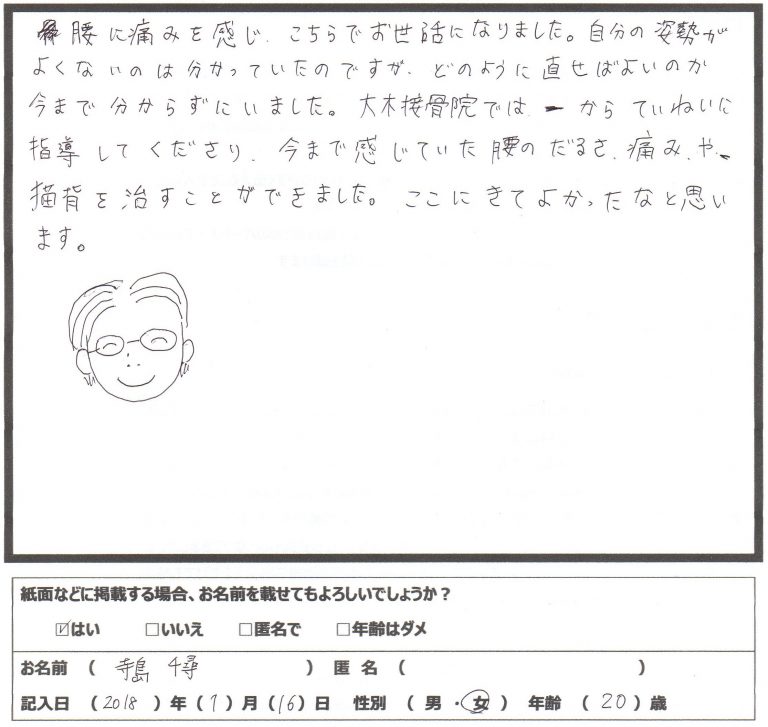 腰に痛みを感じ、こちらでお世話になりました。自分の姿勢が
よくないのは分かっていたのですが、どのように直せばよいのか
今まで分からずにいました。大木接骨院では、一からていねいに
指導してくださり、今まで感じていた腰のだるさ、痛み、や、
猫背を治すことができました。ここにきてよかったなと思い
ます。
紙面などに掲載する場合、お名前を載せてもよろしいでしょうか?
☑はい □いいえ □匿名で □年齢はダメ
お名前 ( 寺島 千尋 ) 匿名 ( )
記入日 ( 2018 ) 年 ( 1 ) 月 ( 16 ) 日 性別 ( 男 ・ 女 ) 年齢 ( 20 ) 歳